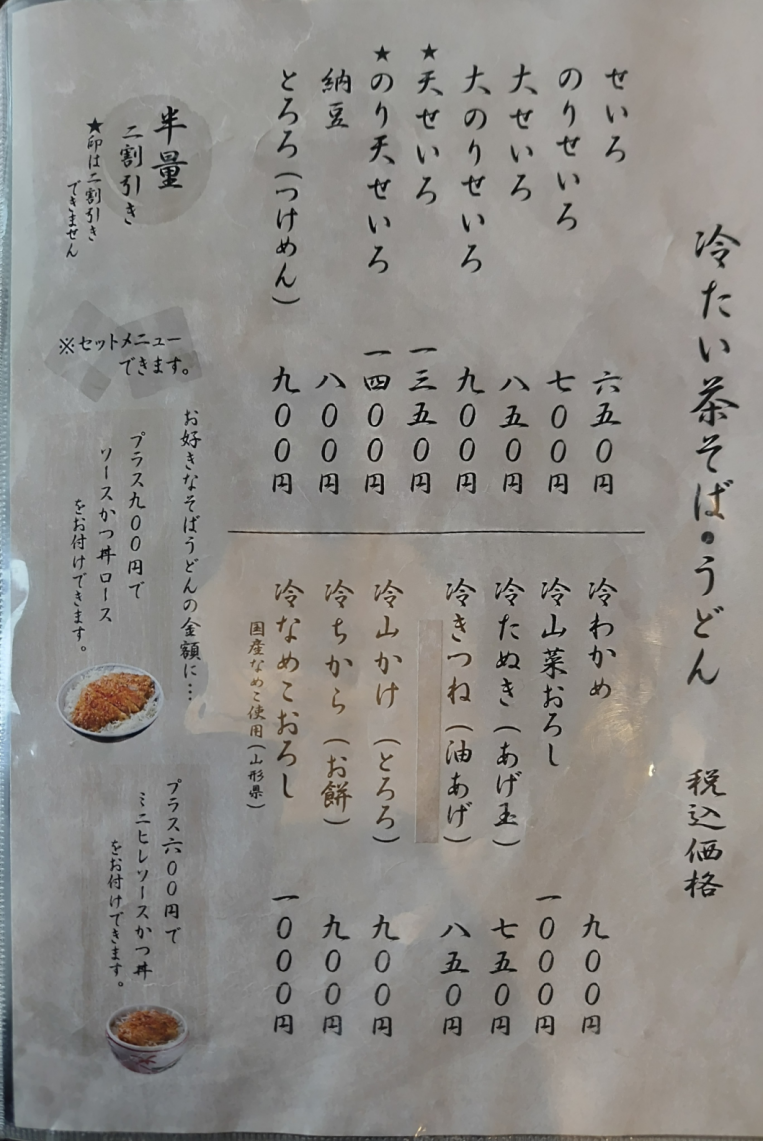 冷たい茶そば・うどん 税込価格
せいろ 六五〇円
のりせいろ 七〇〇円
大せいろ 八五〇円
大のりせいろ 九〇〇円
★天せいろ 一三五〇円
★のり天せいろ 一四〇〇円
納豆 八〇〇円
とろろ(つけめん) 九〇〇円
冷わかめ 九〇〇円
冷山菜おろし 一〇〇〇円
冷たぬき(あげ玉) 七五〇円
冷きつね(油あげ) 八五〇円
冷山かけ(とろろ) 九〇〇円
冷ちから(お餅) 九〇〇円
冷なめこおろし 一〇〇〇円
国産なめこ使用(山形県)
半量
二割引き
★印は二割引き
できません
※セットメニュー
できます。
お好きなそばうどんの金額に…
プラス九〇〇円で
ソースかつ丼ロース
をお付けできます。
プラス六〇〇円で
ミニヒレソースかつ丼
をお付けできます。